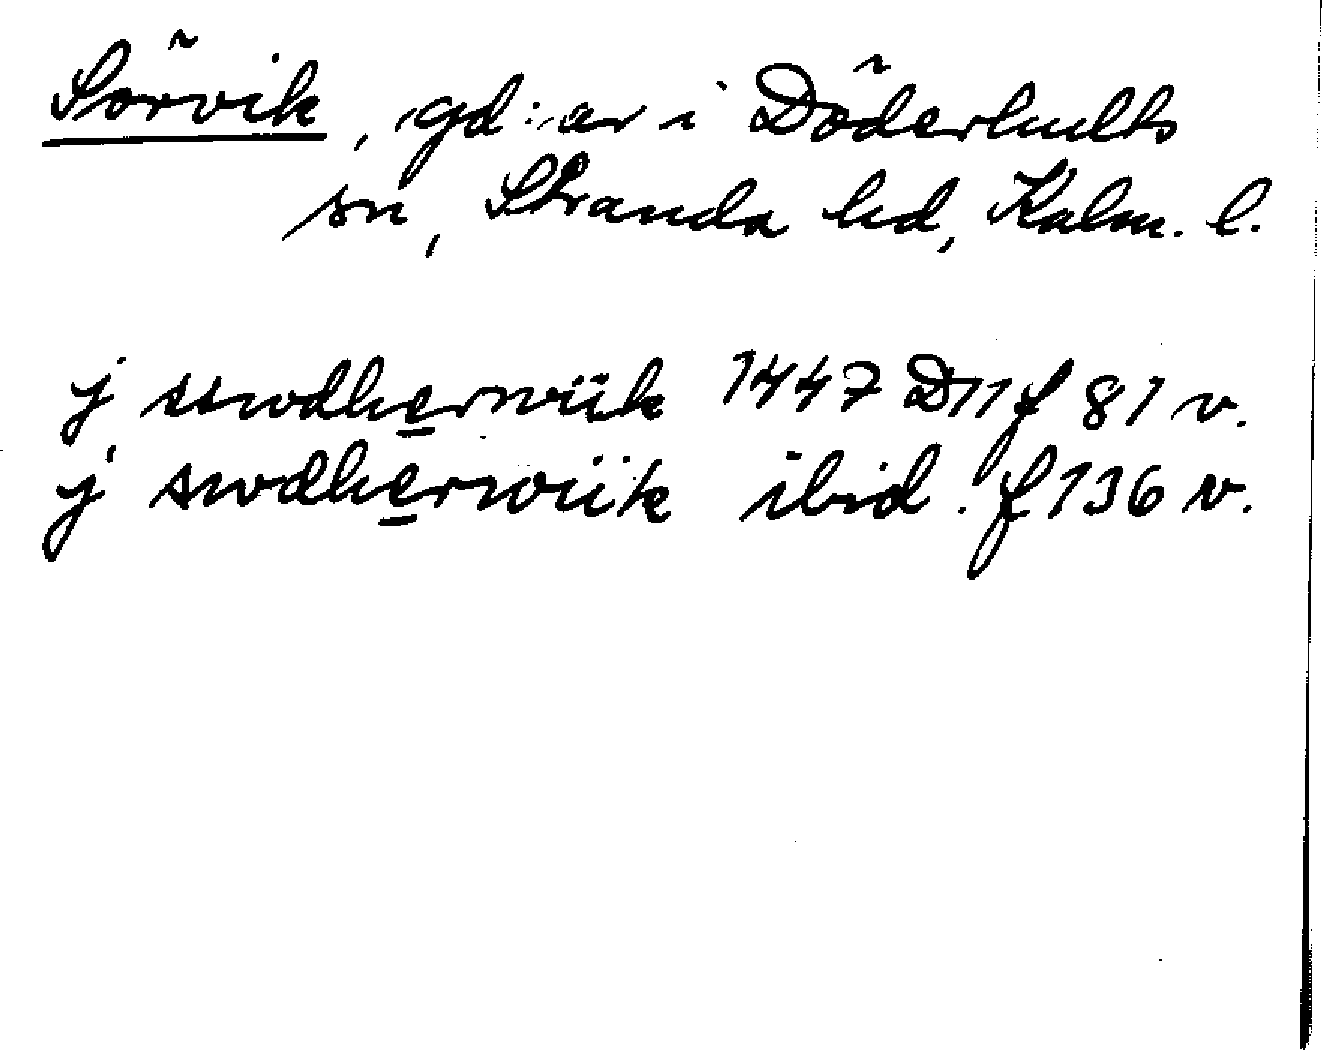 Sörvik, gd:ar i Döderhults
sn, Stranda hd, Kalm. l.
j sswdherwiik 1447 D11 f 81 v.
j swdherwiik ibid. f 136 v.